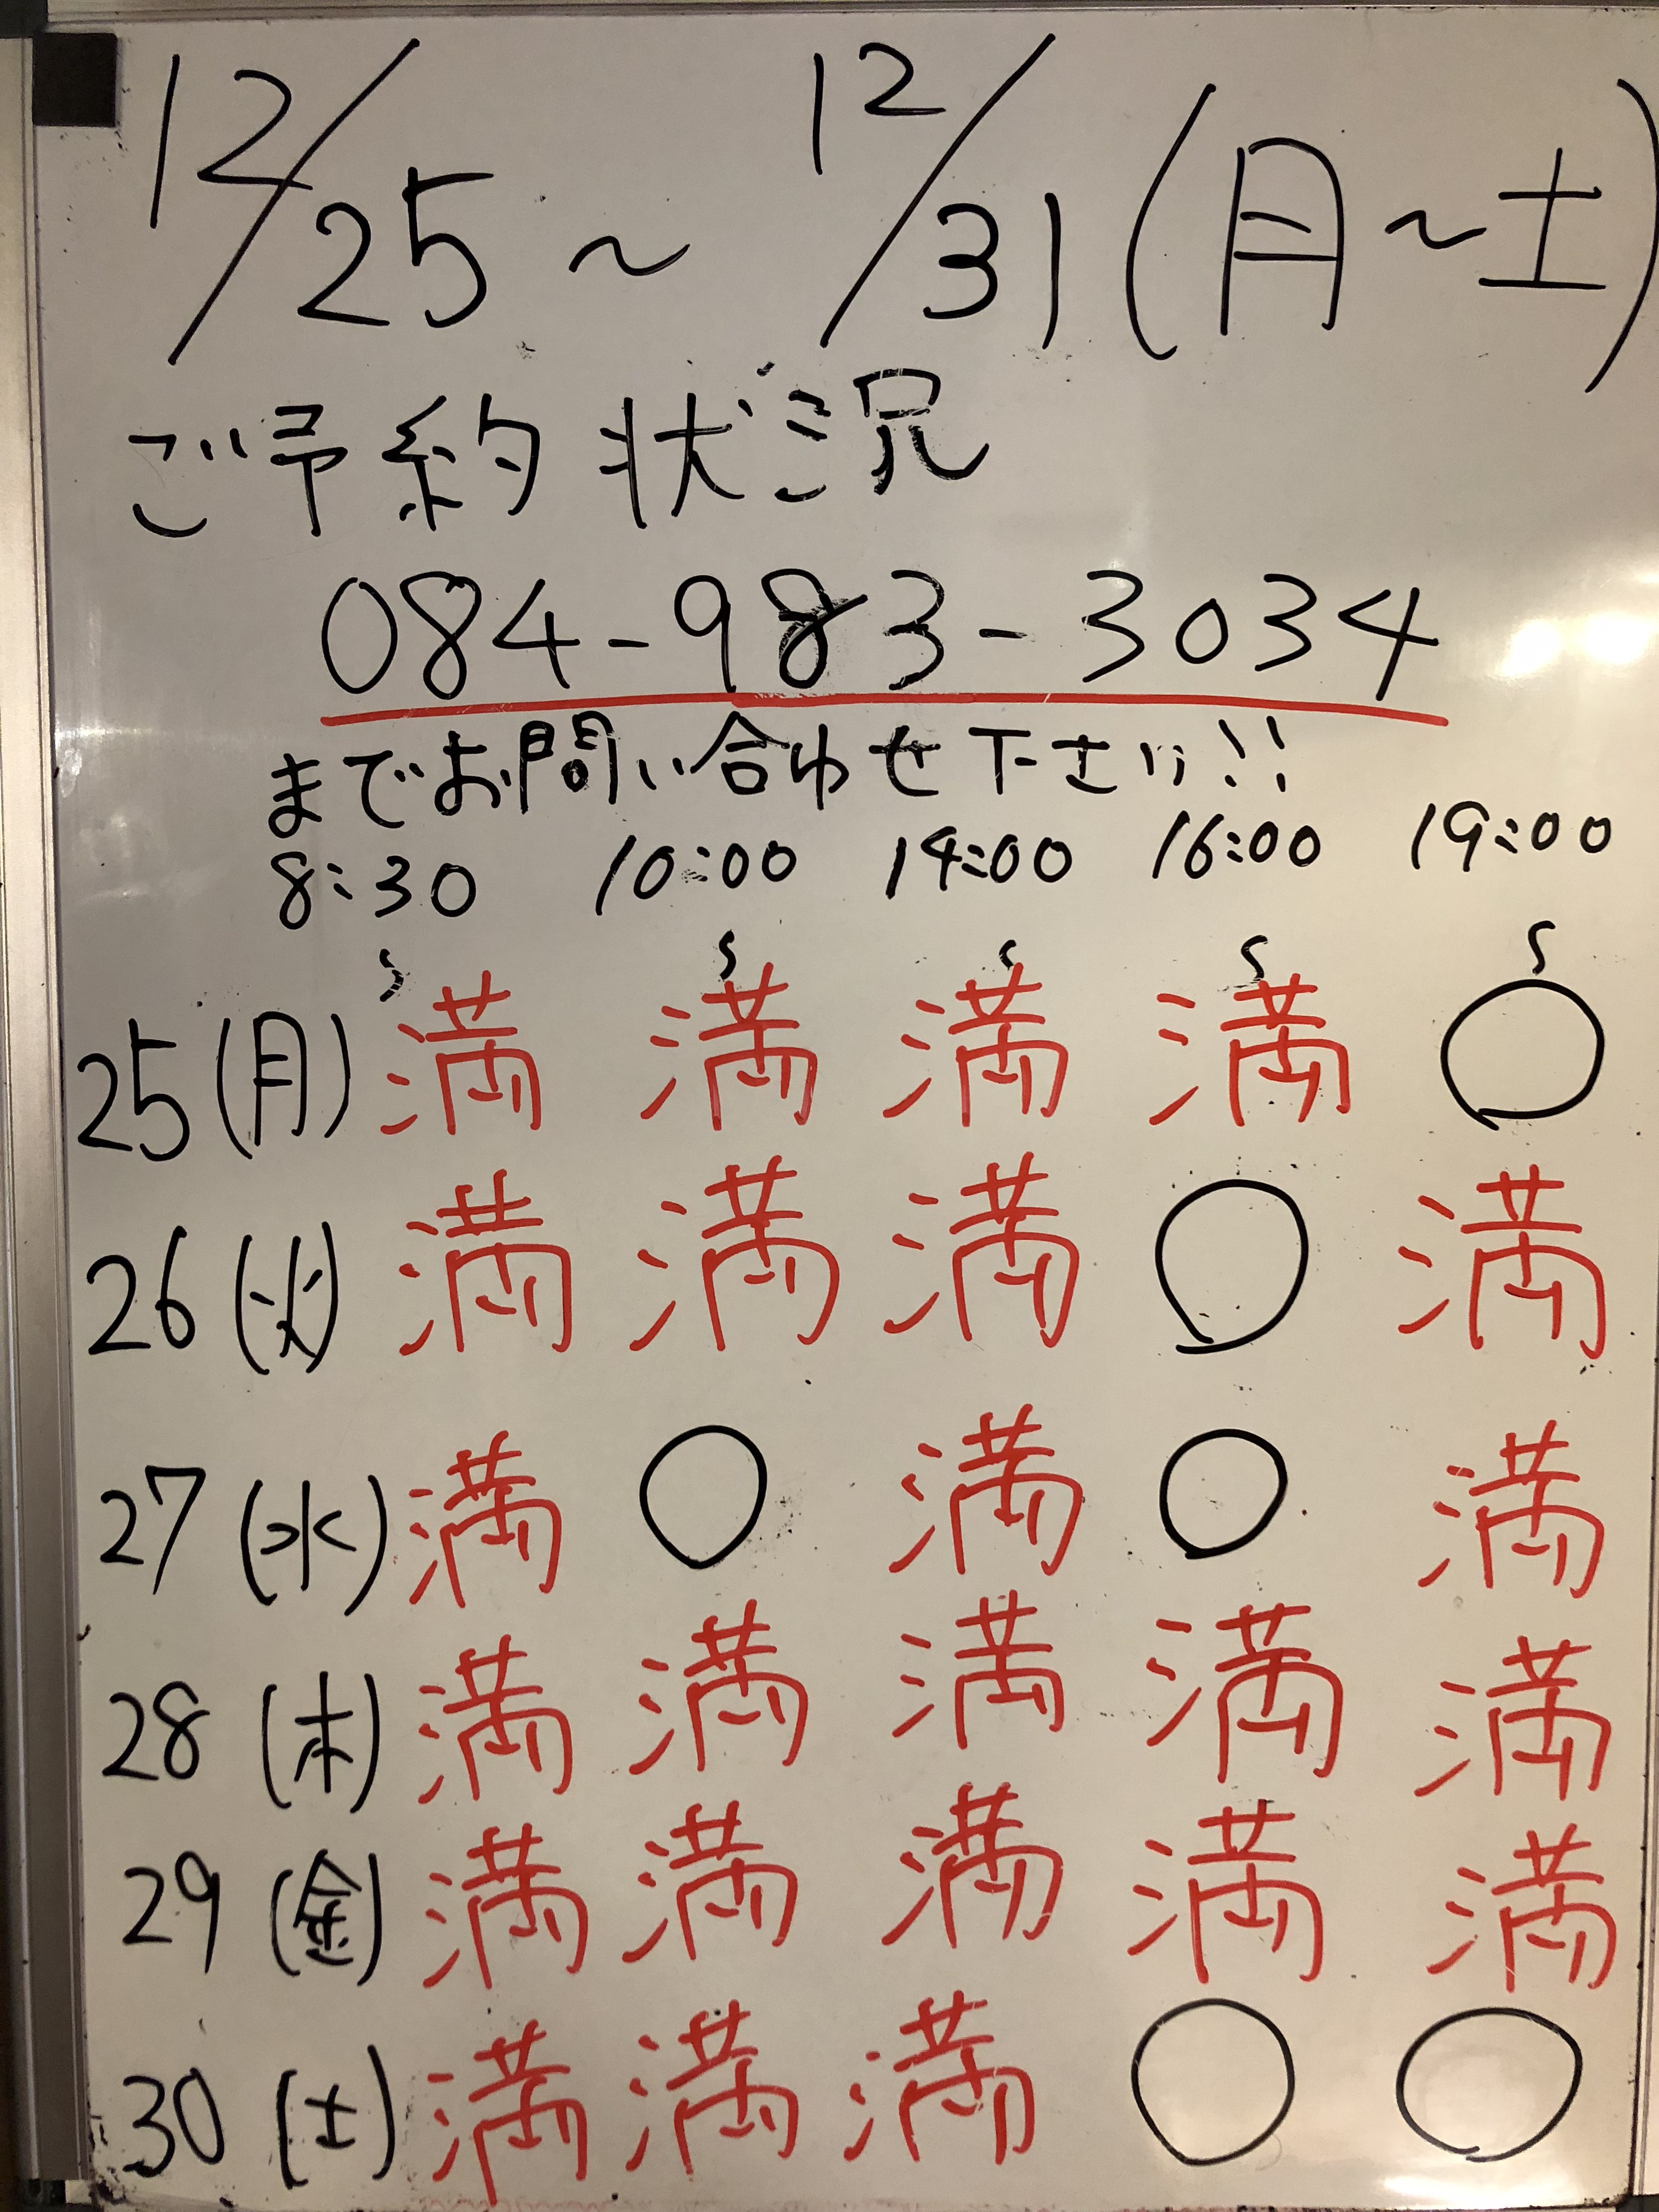 12/25 ~ 12/31 (月~土)
ご予約状況
084-983-3034
までお問い合わせ下さい!!
8:30 10:00 14:00 16:00 19:00
~ ~ ~ ~ ~
25(月) 満 満 満 満 ○
26(火) 満 満 満 ○ 満
27(水) 満 ○ 満 ○ 満
28(木) 満 満 満 満 満
29(金) 満 満 満 満 満
30(土) 満 満 満 ○ ○